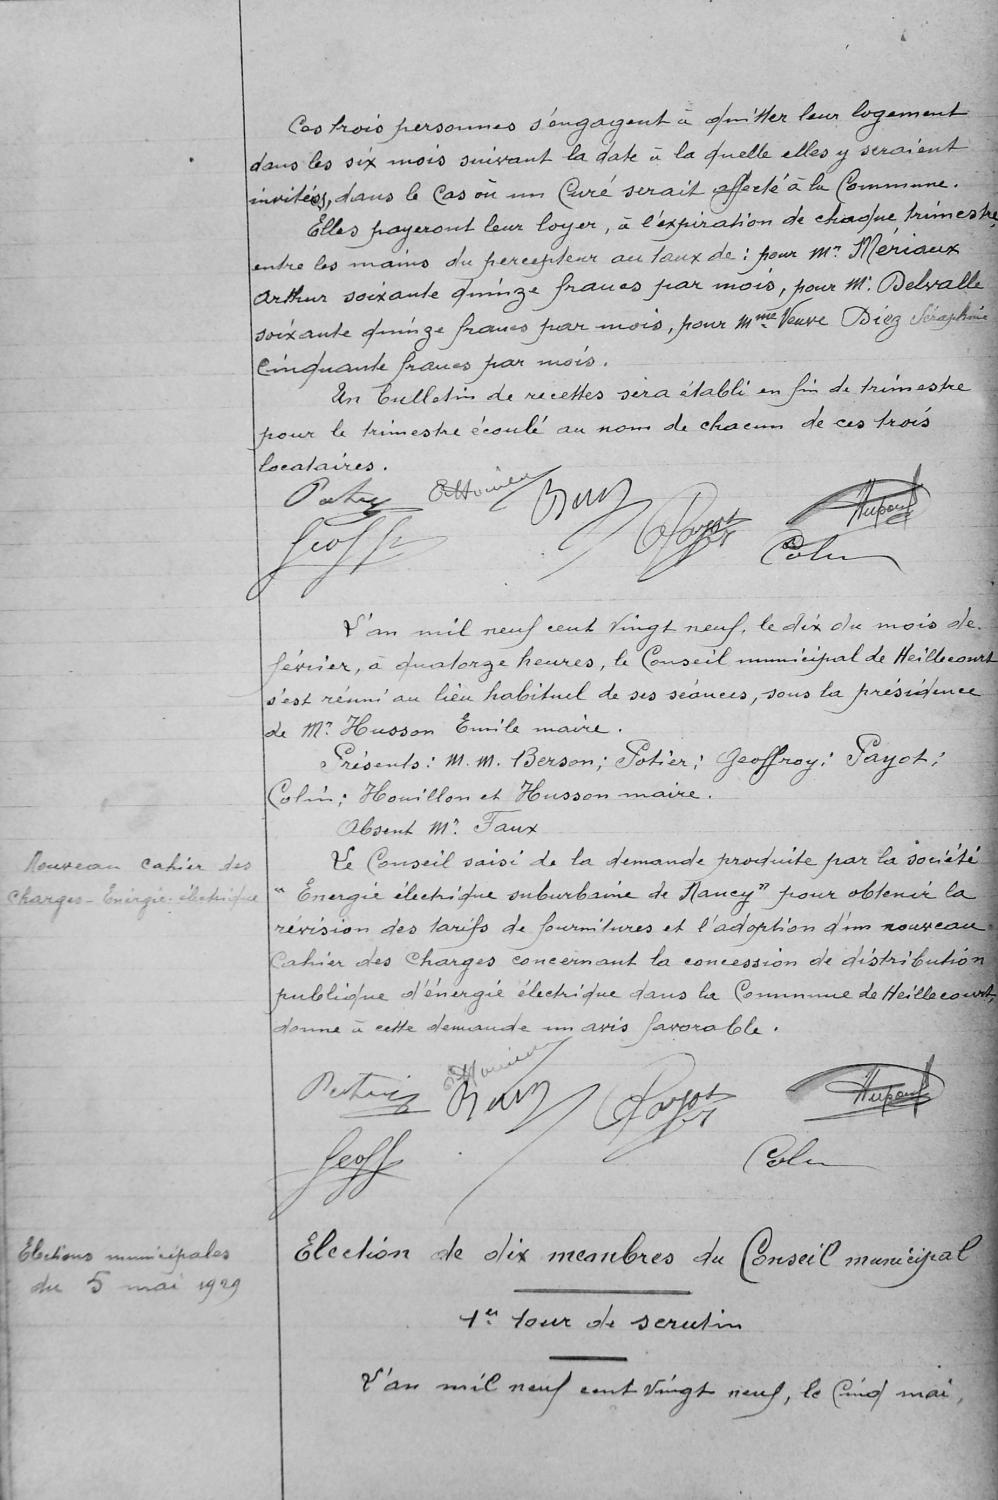 Ces trois personnes s'engagent à quitter leur logement
dans les six mois suivant la date à la quelle elles y seraient
invitées, dans le cas où un Curé serait affecté à la Commune.
Elles payeront leur loyer, à l'expiration de chaque trimestre,
entre les mains du percepteur au taux de : pour Mr. Mériaux
Arthur soixante quinze francs par mois, pour Mr. Delvalle
soixante quinze francs par mois, pour Mme Veuve Diez Séraphine
Cinquante francs par mois.
Un bulletin de recettes sera établi en fin de trimestre
pour le trimestre écoulé au nom de chacun de ces trois
locataires.
Payot
Colin
L'an mil neuf cent vingt neuf, le dix du mois de
février, à quatorze heures, le Conseil municipal de Heillecourt
s'est réuni au lieu habituel de ses séances, sous la présidence
de Mr. Husson Emile maire.
Présents : M. M. Berson ; Potier ; Geoffroy ; Payot ;
Colin ; Houillon et Husson maire.
Absent Mr. Faux
Nouveau cahier des
charges - Energie électrique
Le Conseil saisi de la demande produite par la société
"Energie électrique suburbaine de Nancy" pour obtenir la
révision des tarifs de fournitures et l'adoption d'un nouveau
Cahier des charges concernant la concession de distribution
publique d'énergie électrique dans la Commune de Heillecourt,
donne à cette demande un avis favorable.
Payot
Colin
Elections municipales
du 5 mai 1929
Election de dix membres du Conseil municipal
1er tour de scrutin
L'an mil neuf cent vingt neuf, le cinq mai,